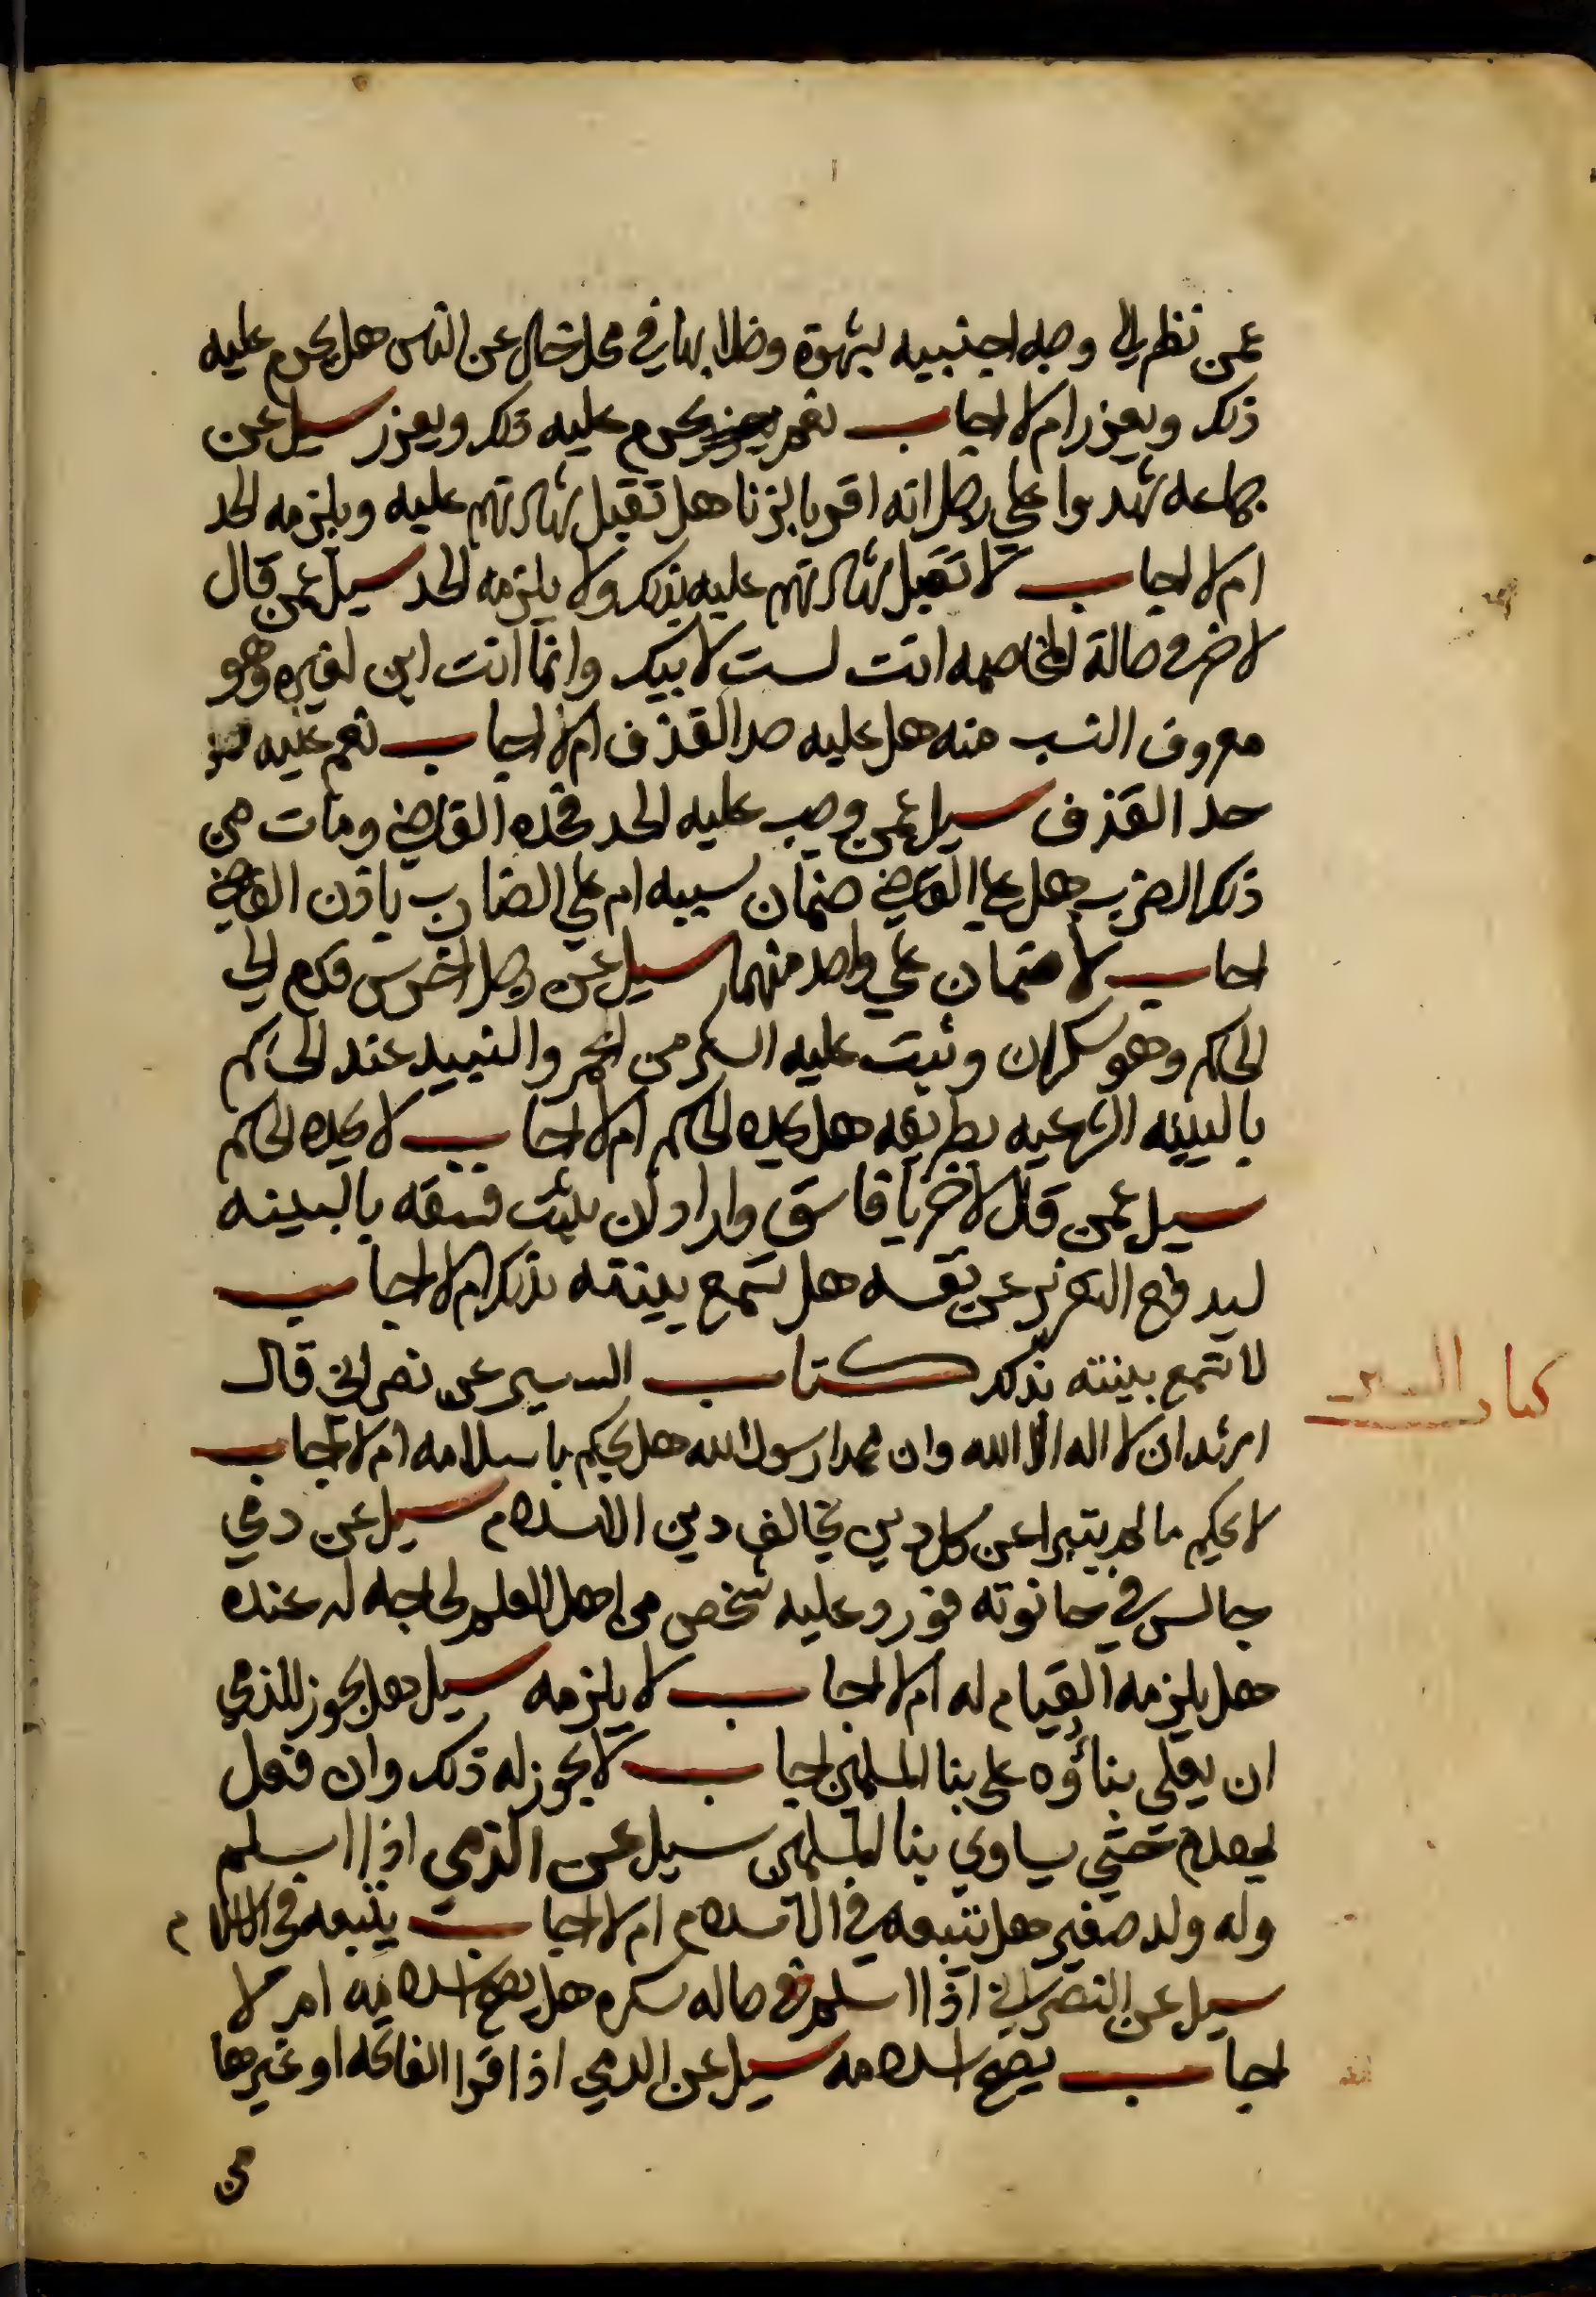 عمن نظر الى وجه اجنبيه بشهوة وخلا بها في محل خال عن الناس هل يحرم عليه
ذلك ويعزر ام لا اجاب نعم يحرم عليه ذلك ويعزر سيل عن
جماعه شهدوا علي رجل انه اقر بالزنا هل تقبل شهادتهم عليه ويلزمه الحد
ام لا اجاب لا تقبل شهادتهم عليه بذلك ولا يلزمه الحد سيل عمن قال
لاخر في حالة المخاصمه انت لست لابيك وانما انت ابن لغيره وهو
معروف النسب منه هل عليه حد القذف ام لا اجاب نعم عليه
حد القذف سيل عمن وجب عليه الحد فحده القاضي ومات من
ذلك الضرب هل علي القاضي ضمان بسببه ام علي الضارب باذن القاضي
اجاب لا ضمان علي واحد منهما سيل عن رجل اخرس قدم الي
الحاكم وهو سكران وثبت عليه السكر من الخمر والنبيد عند الحاكم
بالبينه الشرعيه بطريقه هل يحده الحاكم ام لا اجاب لا يحده الحاكم
سيل عمن قال لاخر يا فاسق واراد ان يثبت فسقه بالبينه
ليدفع التعزير عن نفسه هل تسمع بينته بذلك ام لا اجاب
لا تسمع بينته بذلك كتاب السير عن نصراني قال
اشهد ان لا اله الا الله وان محمدا رسول الله هل يحكم باسلامه ام لا اجاب
لا يحكم ما لم يتبرا عن كل دين يخالف دين الاسلام سيل عن ذمي
جالس في حانوته فورد عليه شخص من اهل العلم لحاجه له عنده
هل يلزمه القيام له ام لا اجاب لا يلزمه سيل هل يجوز للذمي
ان يعلي بناؤه على بنا المسلمين اجاب لا يجوز له ذلك وان فعل
يهدم حتي يساوي بنا المسلمين سيل عن الذمي اذا اسلم
وله ولد صغير هل يتبعه في الاسلام ام لا اجاب يتبعه في الاسلام
سيل عن النصراني اذا اسلم في حاله سكره هل يصح اسلامه ام لا
اجاب يصح اسلامه سيل عن الذمي اذا قرا الفاتحه او غيرها
من
كتاب السير